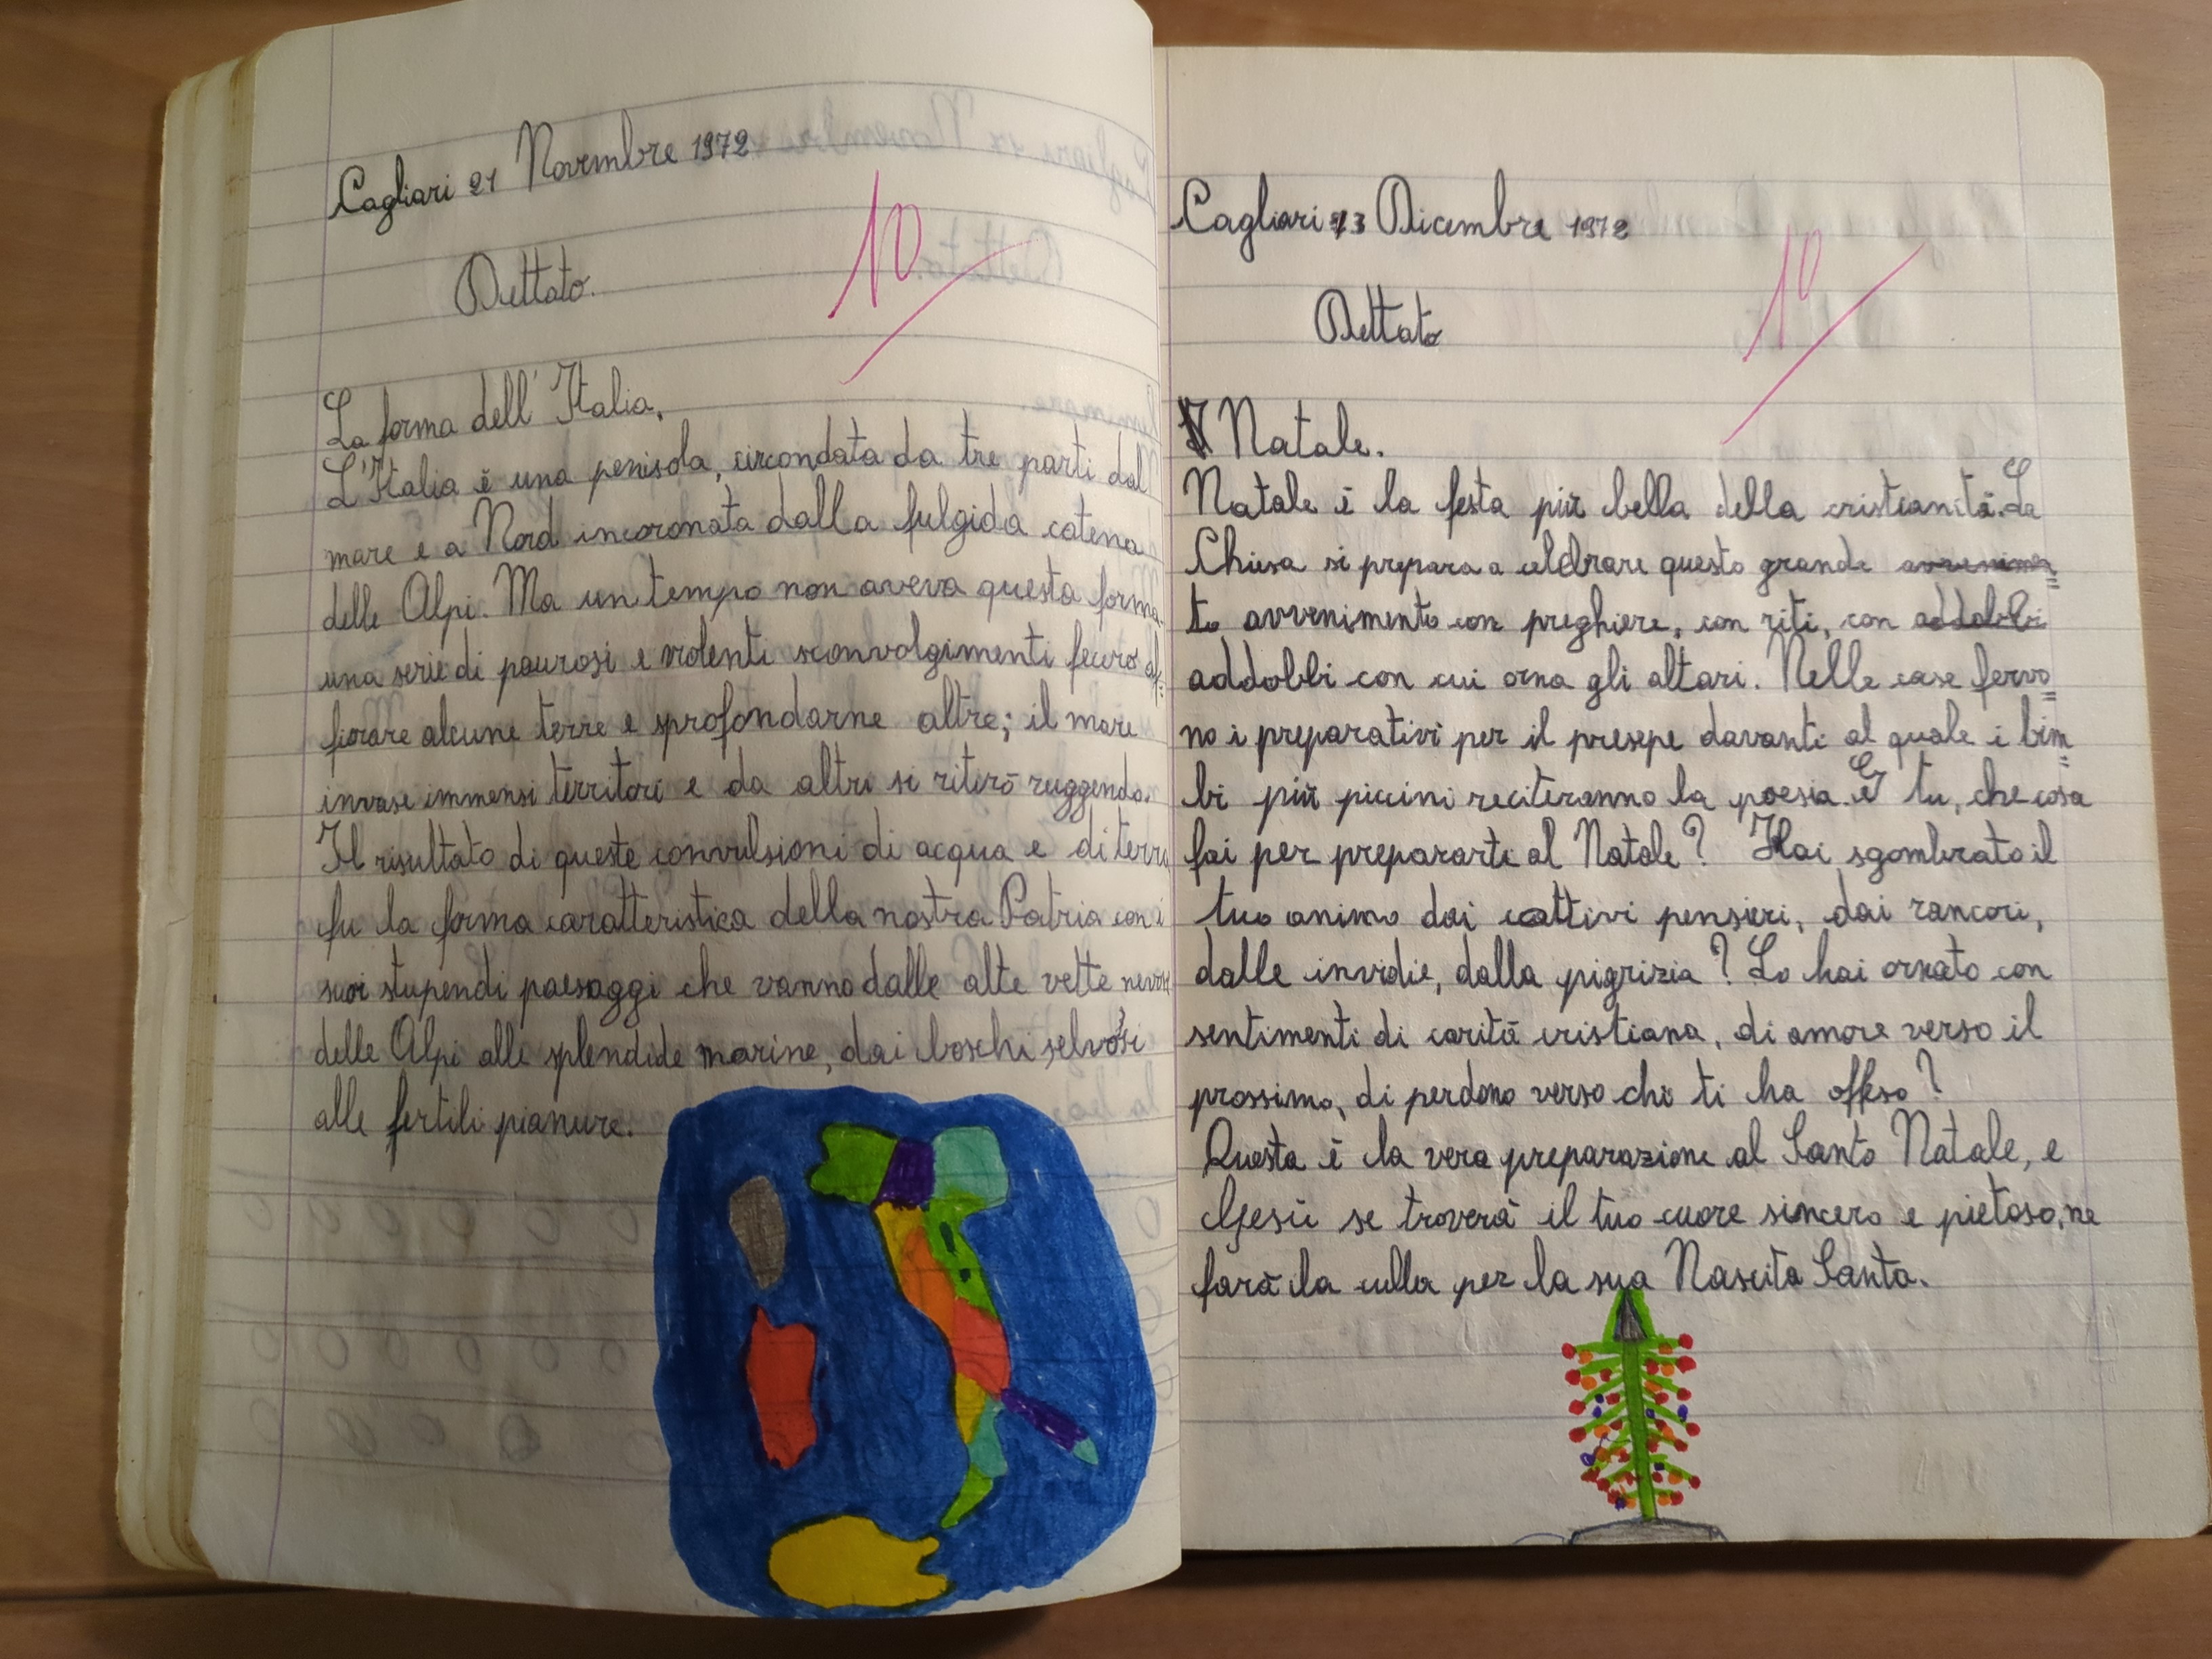 Cagliari 21 Novembre 1972
Dettato.
10
La forma dell'Italia.
L'Italia è una penisola, circondata da tre parti dal
mare e a Nord incoronata dalla fulgida catena
delle Alpi. Ma un tempo non aveva questa forma.
una serie di paurosi e violenti sconvolgimenti fecero af=
fiorare alcune terre e sprofondarne altre; il mare
invase immensi territori e da altri si ritirò ruggendo.
Il risultato di queste convulsioni di acqua e di terra
fu la forma caratteristica della nostra Patria con i
suoi stupendi paesaggi che vanno dalle alte vette nevose
delle Alpi alle splendide marine, dai boschi selvosi
alle fertili pianure.
Cagliari 13 Dicembre 1972
Dettato
10
Natale.
Natale è la festa più bella della cristianità. La
Chiesa si prepara a celebrare questo grande avvenimen=
to avvenimento con preghiere, con riti, con addobbi
addobbi con cui orna gli altari. Nelle case fervo=
no i preparativi per il presepe davanti al quale i bim=
bi più piccini reciteranno la poesia. E tu, che cosa
fai per prepararti al Natale? Hai sgombrato il
tuo animo dai cattivi pensieri, dai rancori,
dalle invidie, dalla pigrizia? Lo hai ornato con
sentimenti di carità cristiana, di amore verso il
prossimo, di perdono verso chi ti ha offeso?
Questa è la vera preparazione al Santo Natale, e
Gesù se troverà il tuo cuore sincero e pietoso, ne
farà la culla per la sua Nascita Santa.